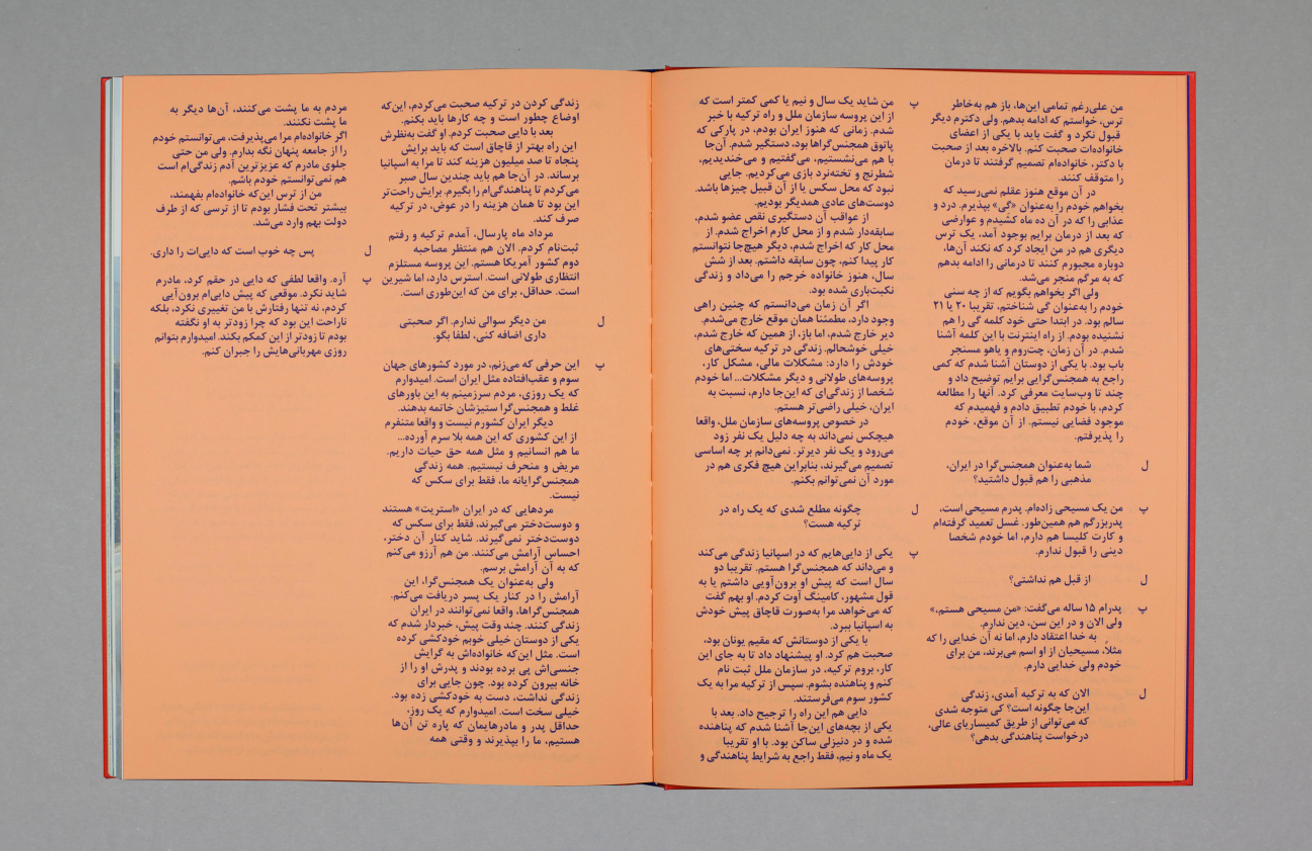 من علی‌رغم تمامی این‌ها، باز هم به‌خاطر
ترس، خواستم که ادامه بدهم. ولی دکترم دیگر
قبول نکرد و گفت باید با یکی از اعضای
خانواده‌ات صحبت کنم. بالاخره بعد از صحبت
با دکتر، خانواده‌ام تصمیم گرفتند تا درمان
را متوقف کنند.
در آن موقع هنوز عقلم نمی‌رسید که
بخواهم خودم را به‌عنوان «گی» بپذیرم. درد و
عذابی را که در آن ده ماه کشیدم و عوارضی
که بعد از درمان برایم بوجود آمد، یک ترس
دیگری هم در من ایجاد کرد که نکند آن‌ها،
دوباره مجبورم کنند تا درمانی را ادامه بدهم
که به مرگم منجر می‌شد.
ولی اگر بخواهم بگویم که از چه سنی
خودم را به‌عنوان گی شناختم، تقریبا ۲۰ یا ۲۱
سالم بود. در ابتدا حتی خود کلمه گی را هم
نشنیده بودم. از راه اینترنت با این کلمه آشنا
شدم. در آن زمان، چت‌روم و یاهو مسنجر
باب بود. با یکی از دوستان آشنا شدم که کمی
راجع به همجنس‌گرایی برایم توضیح داد و
چند تا وب‌سایت معرفی کرد. آنها را مطالعه
کردم، با خودم تطبیق دادم و فهمیدم که
موجود فضایی نیستم. از آن موقع، خودم
را پذیرفتم.
ل شما به‌عنوان همجنس‌گرا در ایران،
مذهبی را هم قبول داشتید؟
پ من یک مسیحی زاده‌ام. پدرم مسیحی است،
پدربزرگم هم همین‌طور. غسل تعمید گرفته‌ام
و کارت کلیسا هم دارم، اما خودم شخصا
دینی را قبول ندارم.
ل از قبل هم نداشتی؟
پ پدرام ۱۵ ساله می‌گفت: «من مسیحی هستم.»
ولی الان و در این سن، دین ندارم.
به خدا اعتقاد دارم، اما نه آن خدایی را که
مثلاً، مسیحیان از او اسم می‌برند، من برای
خودم ولی خدایی دارم.
ل الان که به ترکیه آمدی، زندگی
این‌جا چگونه است؟ کی متوجه شدی
که می‌توانی از طریق کمیساریای عالی،
درخواست پناهندگی بدهی؟
پ من شاید یک سال و نیم یا کمی کمتر است که
از این پروسه سازمان ملل و راه ترکیه با خبر
شدم. زمانی که هنوز ایران بودم، در پارکی که
پاتوق همجنس‌گراها بود، دستگیر شدم. آن‌جا
با هم می‌نشستیم، می‌گفتیم و می‌خندیدیم،
شطرنج و تخته‌نرد بازی می‌کردیم. جایی
نبود که محل سکس یا از آن قبیل چیزها باشد.
دوست‌های عادی همدیگر بودیم.
از عواقب آن دستگیری نقص عضو شدم،
سابقه‌دار شدم و از محل کارم اخراج شدم. از
محل کار که اخراج شدم، دیگر هیچ‌جا نتوانستم
کار پیدا کنم، چون سابقه داشتم. بعد از شش
سال، هنوز خانواده خرجم را می‌داد و زندگی
نکبت‌باری شده بود.
اگر آن زمان می‌دانستم که چنین راهی
وجود دارد، مطمئنا همان موقع خارج می‌شدم.
دیر خارج شدم، اما باز، از همین که خارج شدم،
خیلی خوشحالم. زندگی در ترکیه سختی‌های
خودش را دارد: مشکلات مالی، مشکل کار،
پروسه‌های طولانی و دیگر مشکلات... اما خودم
شخصا از زندگی‌ای که این‌جا دارم، نسبت به
ایران، خیلی راضی‌تر هستم.
در خصوص پروسه‌های سازمان ملل، واقعا
هیچکس نمی‌داند به چه دلیل یک نفر زود
می‌رود و یک نفر دیرتر. نمی‌دانم بر چه اساسی
تصمیم می‌گیرند، بنابراین هیچ فکری هم در
مورد آن نمی‌توانم بکنم.
ل چگونه مطلع شدی که یک راه در
ترکیه هست؟
پ یکی از دایی‌هایم که در اسپانیا زندگی می‌کند
و می‌داند که همجنس‌گرا هستم. تقریبا دو
سال است که پیش او برون‌آویی داشتم یا به
قول مشهور، کامینگ آوت کردم. او بهم گفت
که می‌خواهد مرا به‌صورت قاچاق پیش خودش
به اسپانیا ببرد.
با یکی از دوستانش که مقیم یونان بود،
صحبت هم کرد. او پیشنهاد داد تا به جای این
کار، بروم ترکیه، در سازمان ملل ثبت نام
کنم و پناهنده بشوم. سپس از ترکیه مرا به یک
کشور سوم می‌فرستند.
دایی هم این راه را ترجیح داد. بعد با
یکی از بچه‌های این‌جا آشنا شدم که پناهنده
شده و در دنیزلی ساکن بود. با او تقریبا
یک ماه و نیم، فقط راجع به شرایط پناهندگی و
زندگی کردن در ترکیه صحبت می‌کردم، این‌که
اوضاع چطور است و چه کارها باید بکنم.
بعد با دایی صحبت کردم. او گفت به‌نظرش
این راه بهتر از قاچاق است که باید برایش
پنجاه تا صد میلیون هزینه کند تا مرا به اسپانیا
برساند. در آن‌جا هم باید چندین سال صبر
می‌کردم تا پناهندگی‌ام را بگیرم. برایش راحت‌تر
این بود تا همان هزینه را در عوض، در ترکیه
صرف کند.
مرداد ماه پارسال، آمدم ترکیه و رفتم
ثبت‌نام کردم. الان هم منتظر مصاحبه
دوم کشور آمریکا هستم. این پروسه مستلزم
انتظاری طولانی است. استرس دارد، اما شیرین
است. حداقل، برای من که این‌طوری است.
ل من دیگر سوالی ندارم. اگر صحبتی
داری اضافه کنی، لطفا بگو.
پ این حرفی که می‌زنم، در مورد کشورهای جهان
سوم و عقب‌افتاده مثل ایران است. امیدوارم
که یک روزی، مردم سرزمینم به این باورهای
غلط و همجنس‌گرا ستیزشان خاتمه بدهند.
دیگر ایران کشورم نیست و واقعا متنفرم
از این کشوری که این همه بلا سرم آورده...
ما هم انسانیم و مثل همه حق حیات داریم.
مریض و منحرف نیستیم. همه زندگی
همجنس‌گرایانه ما، فقط برای سکس که
نیست.
مردهایی که در ایران «استریت» هستند
و دوست‌دختر می‌گیرند، فقط برای سکس که
دوست‌دختر نمی‌گیرند. شاید کنار آن دختر،
احساس آرامش می‌کنند. من هم آرزو می‌کنم
که به آن آرامش برسم.
ولی به‌عنوان یک همجنس‌گرا، این
آرامش را در کنار یک پسر دریافت می‌کنم.
همجنس‌گراها، واقعا نمی‌توانند در ایران
زندگی کنند. چند وقت پیش، خبردار شدم که
یکی از دوستان خیلی خوبم خودکشی کرده
است. مثل این‌که خانواده‌اش به گرایش
جنسی‌اش پی برده بودند و پدرش او را از
خانه بیرون کرده بود. چون جایی برای
زندگی نداشت، دست به خودکشی زده بود.
خیلی سخت است. امیدوارم که یک روز،
حداقل پدر و مادرهایمان که پاره تن آن‌ها
هستیم، ما را بپذیرند و وقتی همه
مردم به ما پشت می‌کنند، آن‌ها دیگر به
ما پشت نکنند.
اگر خانواده‌ام مرا می‌پذیرفت، می‌توانستم خودم
را از جامعه پنهان نگه بدارم. ولی من حتی
جلوی مادرم که عزیزترین آدم زندگی‌ام است
هم نمی‌توانستم خودم باشم.
من از ترس این‌که خانواده‌ام بفهمند،
بیشتر تحت فشار بودم تا از ترسی که از طرف
دولت بهم وارد می‌شد.
ل پس چه خوب است که دایی‌ات را داری.
پ آره. واقعا لطفی که دایی در حقم کرد، مادرم
شاید نکرد. موقعی که پیش دایی‌ام برون‌آیی
کردم، نه تنها رفتارش با من تغییری نکرد، بلکه
ناراحت این بود که چرا زودتر به او نگفته
بودم تا زودتر از این کمکم بکند. امیدوارم بتوانم
روزی مهربانی‌هایش را جبران کنم.